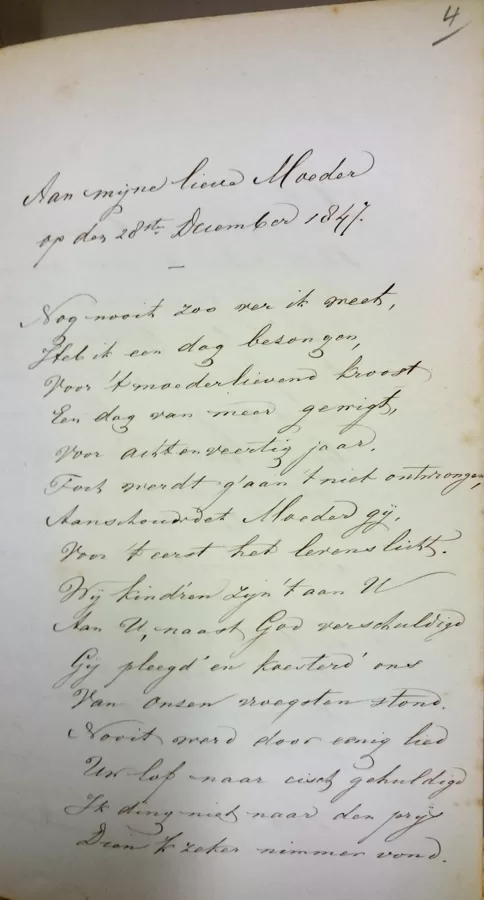 4
Aan mijne lieve Moeder
op den 28ste December 1847.
Nog nooit zoo ver ik weet,
Heb ik een dag besongen,
Voor 't moederlievend kroost
Een dag van meer gewigt,
Voor achtenveertig jaar.
Toch werdt g'aan 't niet ontwrongen,
Aanschouwdet Moeder gij,
Voor 't eerst het levenslicht.
Wij kind'ren zijn 't aan U
Aan U, naast God verschuldigd
Gij pleegd' en koesterd' ons
Van onsen vroegsten stond.
Nooit werd door eenig lied
Uw lof naar eisch gehuldigd
Ik ding niet naar den prijs
Dien 'k zeker nimmer vond.